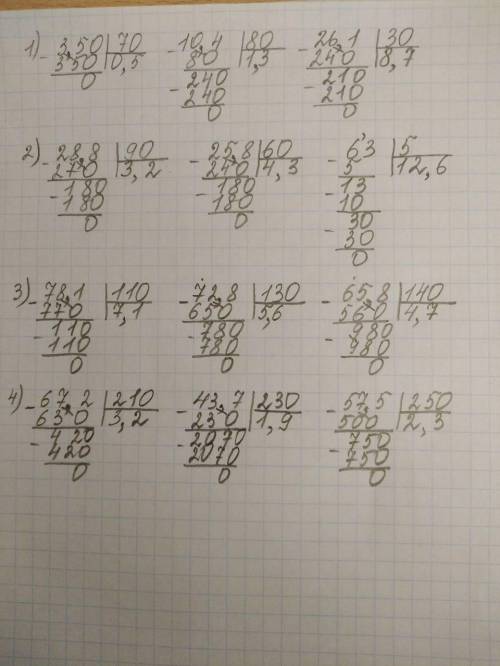 1) - 3,50 |70 - 10,4 |80 - 26,1 |30
350 |0,5 80 |1,3 240 |8,7
0 - 240 - 210
240 210
0 0
2) - 28,8 |90 - 25,8 |60 - 6,3 |5
270 |3,2 240 |4,3 5 |12,6
- 180 - 180 - 13
180 180 10
0 0 - 30
30
0
3) - 78,1 |110 - 72,8 |130 - 65,8 |140
770 |7,1 650 |5,6 560 |4,7
- 110 - 780 - 980
110 780 980
0 0 0
4) - 67,2 |210 - 43,7 |230 - 57,5 |250
630 |3,2 230 |1,9 500 |2,3
- 420 - 2070 - 750
420 2070 750
0 0 0